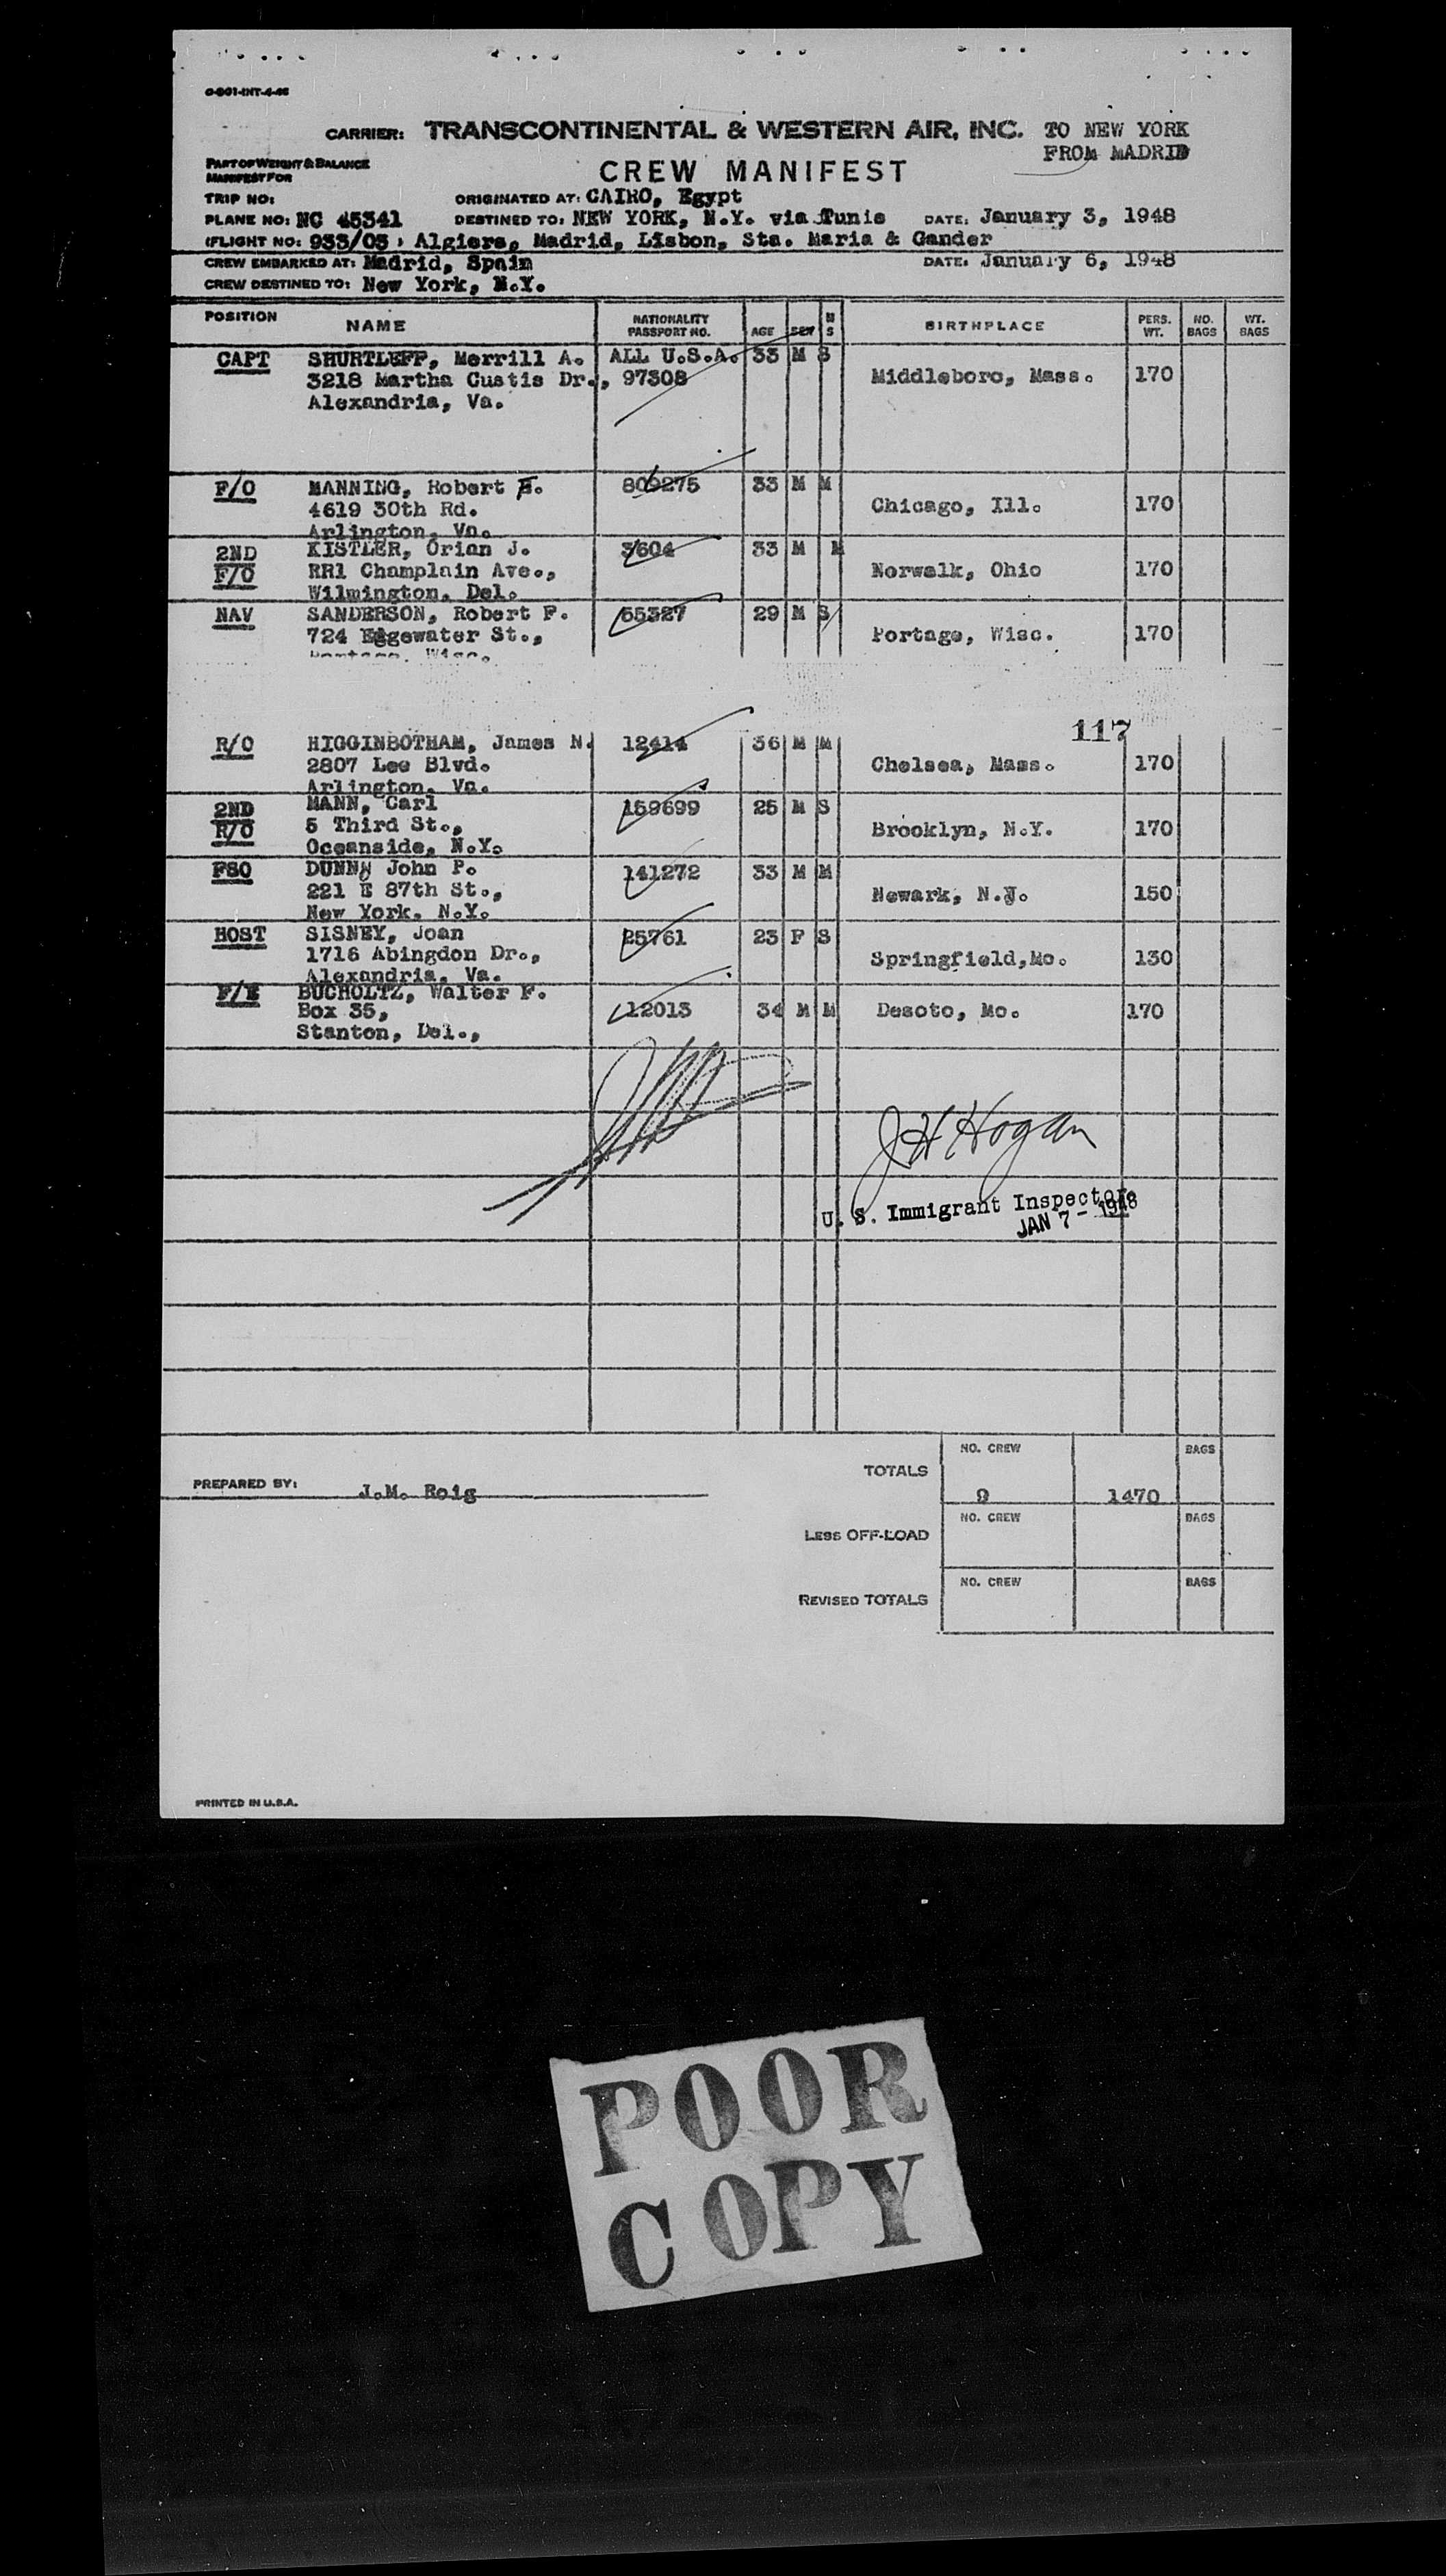 O-801-INT-4-46
CARRIER: TRANSCONTINENTAL & WESTERN AIR, INC. TO NEW YORK
FROM MADRID
PART OF WEIGHT & BALANCE
MANIFEST FOR
CREW MANIFEST
TRIP NO: ORIGINATED AT: CAIRO, Egypt
PLANE NO: NC 45341 DESTINED TO: NEW YORK, N.Y. via Tunis DATE: January 3, 1948
(FLIGHT NO: 933/03) Algiers, Madrid, Lisbon, Sta. Maria & Gander
CREW EMBARKED AT: Madrid, Spain DATE: January 6, 1948
CREW DESTINED TO: New York, N.Y.
POSITION NAME NATIONALITY PASSPORT NO. AGE SEX M S BIRTHPLACE PERS. WT. NO. BAGS WT. BAGS
CAPT SHURTLEFF, Merrill A. ALL U.S.A. 33 M S
3218 Martha Custis Dr., 97308 Middleboro, Mass. 170
Alexandria, Va.
F/O MANNING, Robert E. 809275 33 M M
4619 30th Rd. Chicago, Ill. 170
Arlington, Va.
2ND KISTLER, Orian J. 3604 33 M M
F/O RR1 Champlain Ave., Norwalk, Ohio 170
Wilmington, Del.
NAV SANDERSON, Robert F. 55327 29 M S
724 Edgewater St., Portage, Wisc. 170
Portage, Wisc.
117
R/O HIGGINBOTHAM, James N. 12414 36 M M
2807 Lee Blvd. Chelsea, Mass. 170
Arlington, Va.
2ND MANN, Carl 159699 25 M S
R/O 5 Third St., Brooklyn, N.Y. 170
Oceanside, N.Y.
FSO DUNN, John P. 141272 33 M M
221 E 87th St., Newark, N.J. 150
New York, N.Y.
HOST SISNEY, Joan 25761 23 F S
1716 Abingdon Dr., Springfield, Mo. 130
Alexandria, Va.
F/E BUCHOLTZ, Walter F.
Box 35, 12013 34 M M Desoto, Mo. 170
Stanton, Del.,
J H Hogan
U. S. Immigrant Inspector
JAN 7 - 1948
NO. CREW BAGS
TOTALS
PREPARED BY: J.M. Roig 9 1470
NO. CREW BAGS
LESS OFF-LOAD
NO. CREW BAGS
REVISED TOTALS
PRINTED IN U.S.A.
POOR
COPY